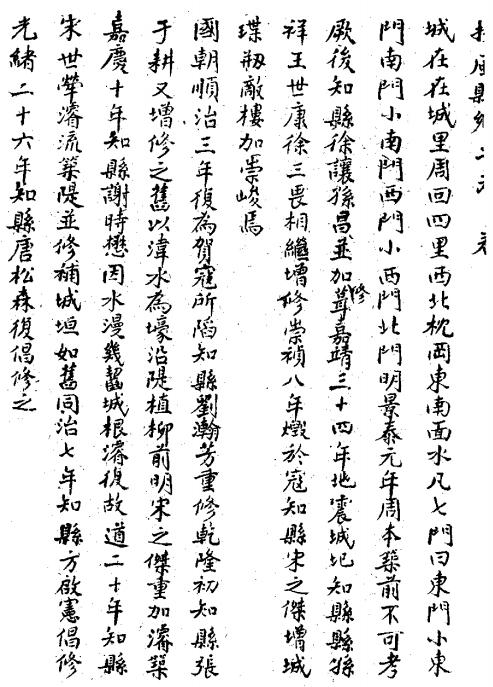 扶風縣鄉土志 卷
城在在城里周回四里西北枕岡東南面水凡七門曰東門小東
門南門小南門西門小西門北門明景泰元年周本築前不可考
厥後知縣徐讓孫昌並加葺修嘉靖三十四年地震城圮知縣縣孫
祥王世康徐三畏相繼增修崇禎八年燬於寇知縣宋之傑增城
堞剏敵樓加崇峻焉
國朝順治三年復為賀寇所陷知縣劉瀚芳重修乾隆初知縣張
于耕又增修之舊以湋水為壕沿隄植柳前明宋之傑重加濬築
嘉慶十年知縣謝時懋因水漫幾齧城根濬復故道二十年知縣
宋世犖濬流築隄並修補城垣如舊同治七年知縣方啟憲倡修
光緒二十六年知縣唐松森復倡修之